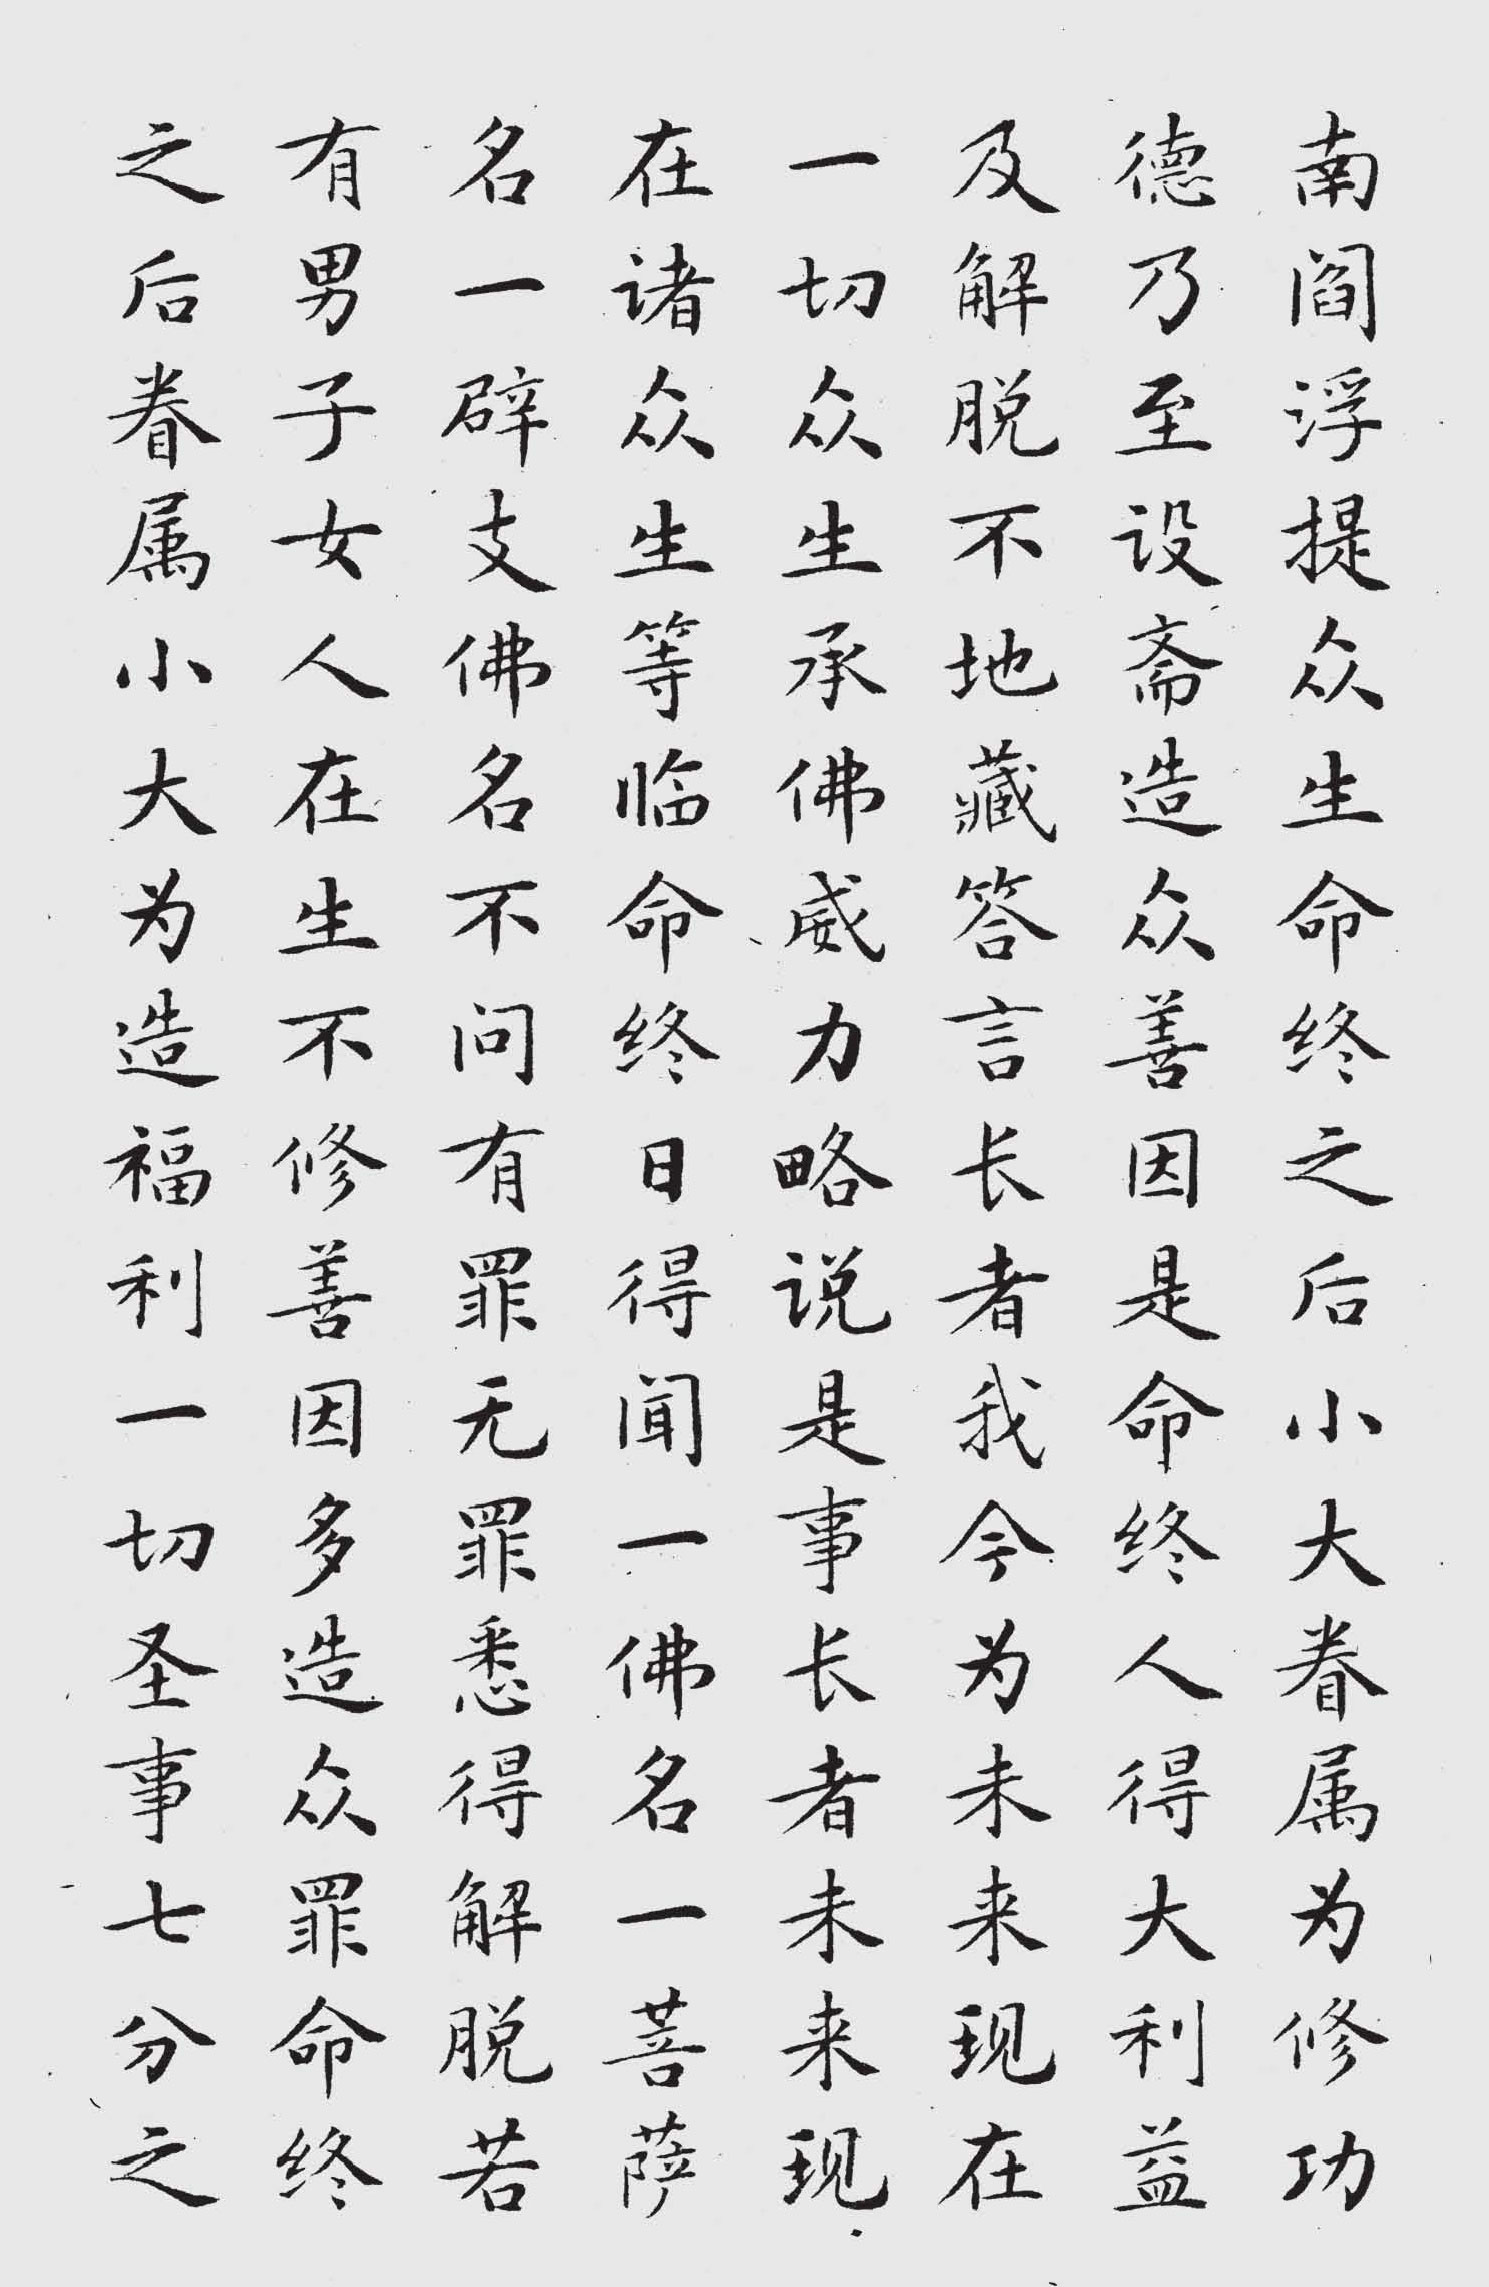 南阎浮提众生命终之后小大眷属为修功
德乃至设斋造众善因是命终人得大利益
及解脱不地藏答言长者我今为未来现在
一切众生承佛威力略说是事长者未来现
在诸众生等临命终日得闻一佛名一菩萨
名一辟支佛名不问有罪无罪悉得解脱若
有男子女人在生不修善因多造众罪命终
之后眷属小大为造福利一切圣事七分之